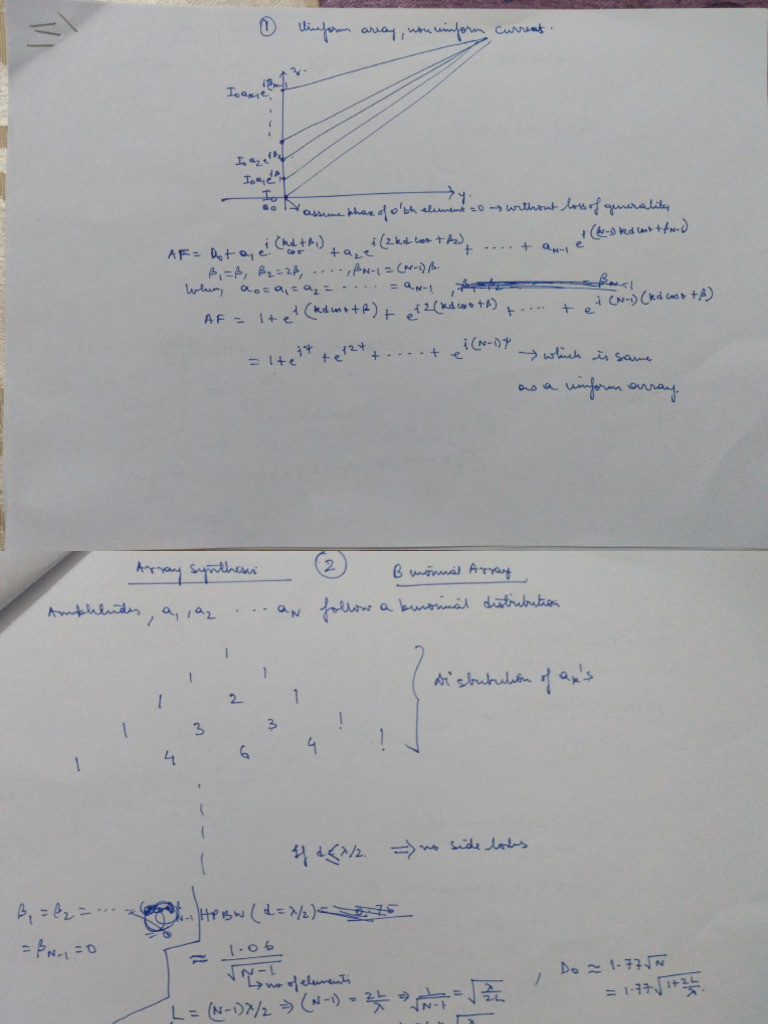 ① Uniform array, nonuniform current.
z
I₀a_{N-1}e^{jβ_{N-1}}
I₀a₂e^{jβ₂}
I₀a₁e^{jβ₁}
I₀
a₀
y.
assume phase of 0'th element = 0 → without loss of generality
AF = a₀ + a₁e^{j(kd cosθ + β₁)} + a₂e^{j(2kd cosθ + β₂)} + ····· + a_{N-1}e^{j((N-1)kd cosθ + β_{N-1})}
β₁ = β, β₂ = 2β, ·····, β_{N-1} = (N-1)β.
When, a₀ = a₁ = a₂ = ····· = a_{N-1},
AF = 1 + e^{j(kd cosθ + β)} + e^{j2(kd cosθ + β)} + ····· + e^{j(N-1)(kd cosθ + β)}
= 1 + e^{jψ} + e^{j2ψ} + ····· + e^{j(N-1)ψ} → which is same
as a uniform array.
Array Synthesis ② Binomial Array
Amplitudes, a₁, a₂ ··· a_N follow a binomial distribution
1
1 1
1 2 1
1 3 3 1
1 4 6 4 1
Distribution of aₙ's
If d ≤ λ/2 ⇒ no side lobes
β₁ = β₂ = ···
= β_{N-1} = 0
HPBW (d = λ/2)
≈ 1.06/√(N-1)
↳ no of elements
L = (N-1)λ/2 ⇒ (N-1) = 2L/λ ⇒ 1/√(N-1) = √(λ/2L)
, D₀ ≈ 1.77√N
= 1.77√(1+2L/λ).